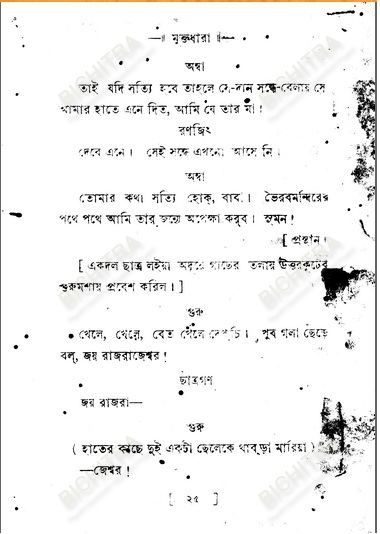 মুক্তধারা
অম্বা
তাই যদি সত্যি হবে তাহলে সে-দান সন্ধে-বেলায় সে
আমার হাতে এনে দিত, আমি যে তার মা।
রণজিৎ
দেবে এনে। সেই সন্ধে এখনো আসে নি।
অম্বা
তোমার কথা সত্যি হোক, বাবা। ভৈরবমন্দিরের
পথে পথে আমি তার জন্যে অপেক্ষা করব। সুমন!
[ প্রস্থান।
[ একদল ছাত্র লইয়া অদূরে গাছের তলায় উত্তরকূটের
গুরুমশায় প্রবেশ করিল। ]
গুরু
খেলে, খেলে, বেত খেলে দেখ্‌চি। খুব গলা ছেড়ে
বল্, জয় রাজরাজেশ্বর!
ছাত্রগণ
জয় রাজরা—
গুরু
( হাতের কাছে দুই একটা ছেলেকে থাবড়া মারিয়া )
—জেশ্বর!
[ ২৫ ]
BICHITRA